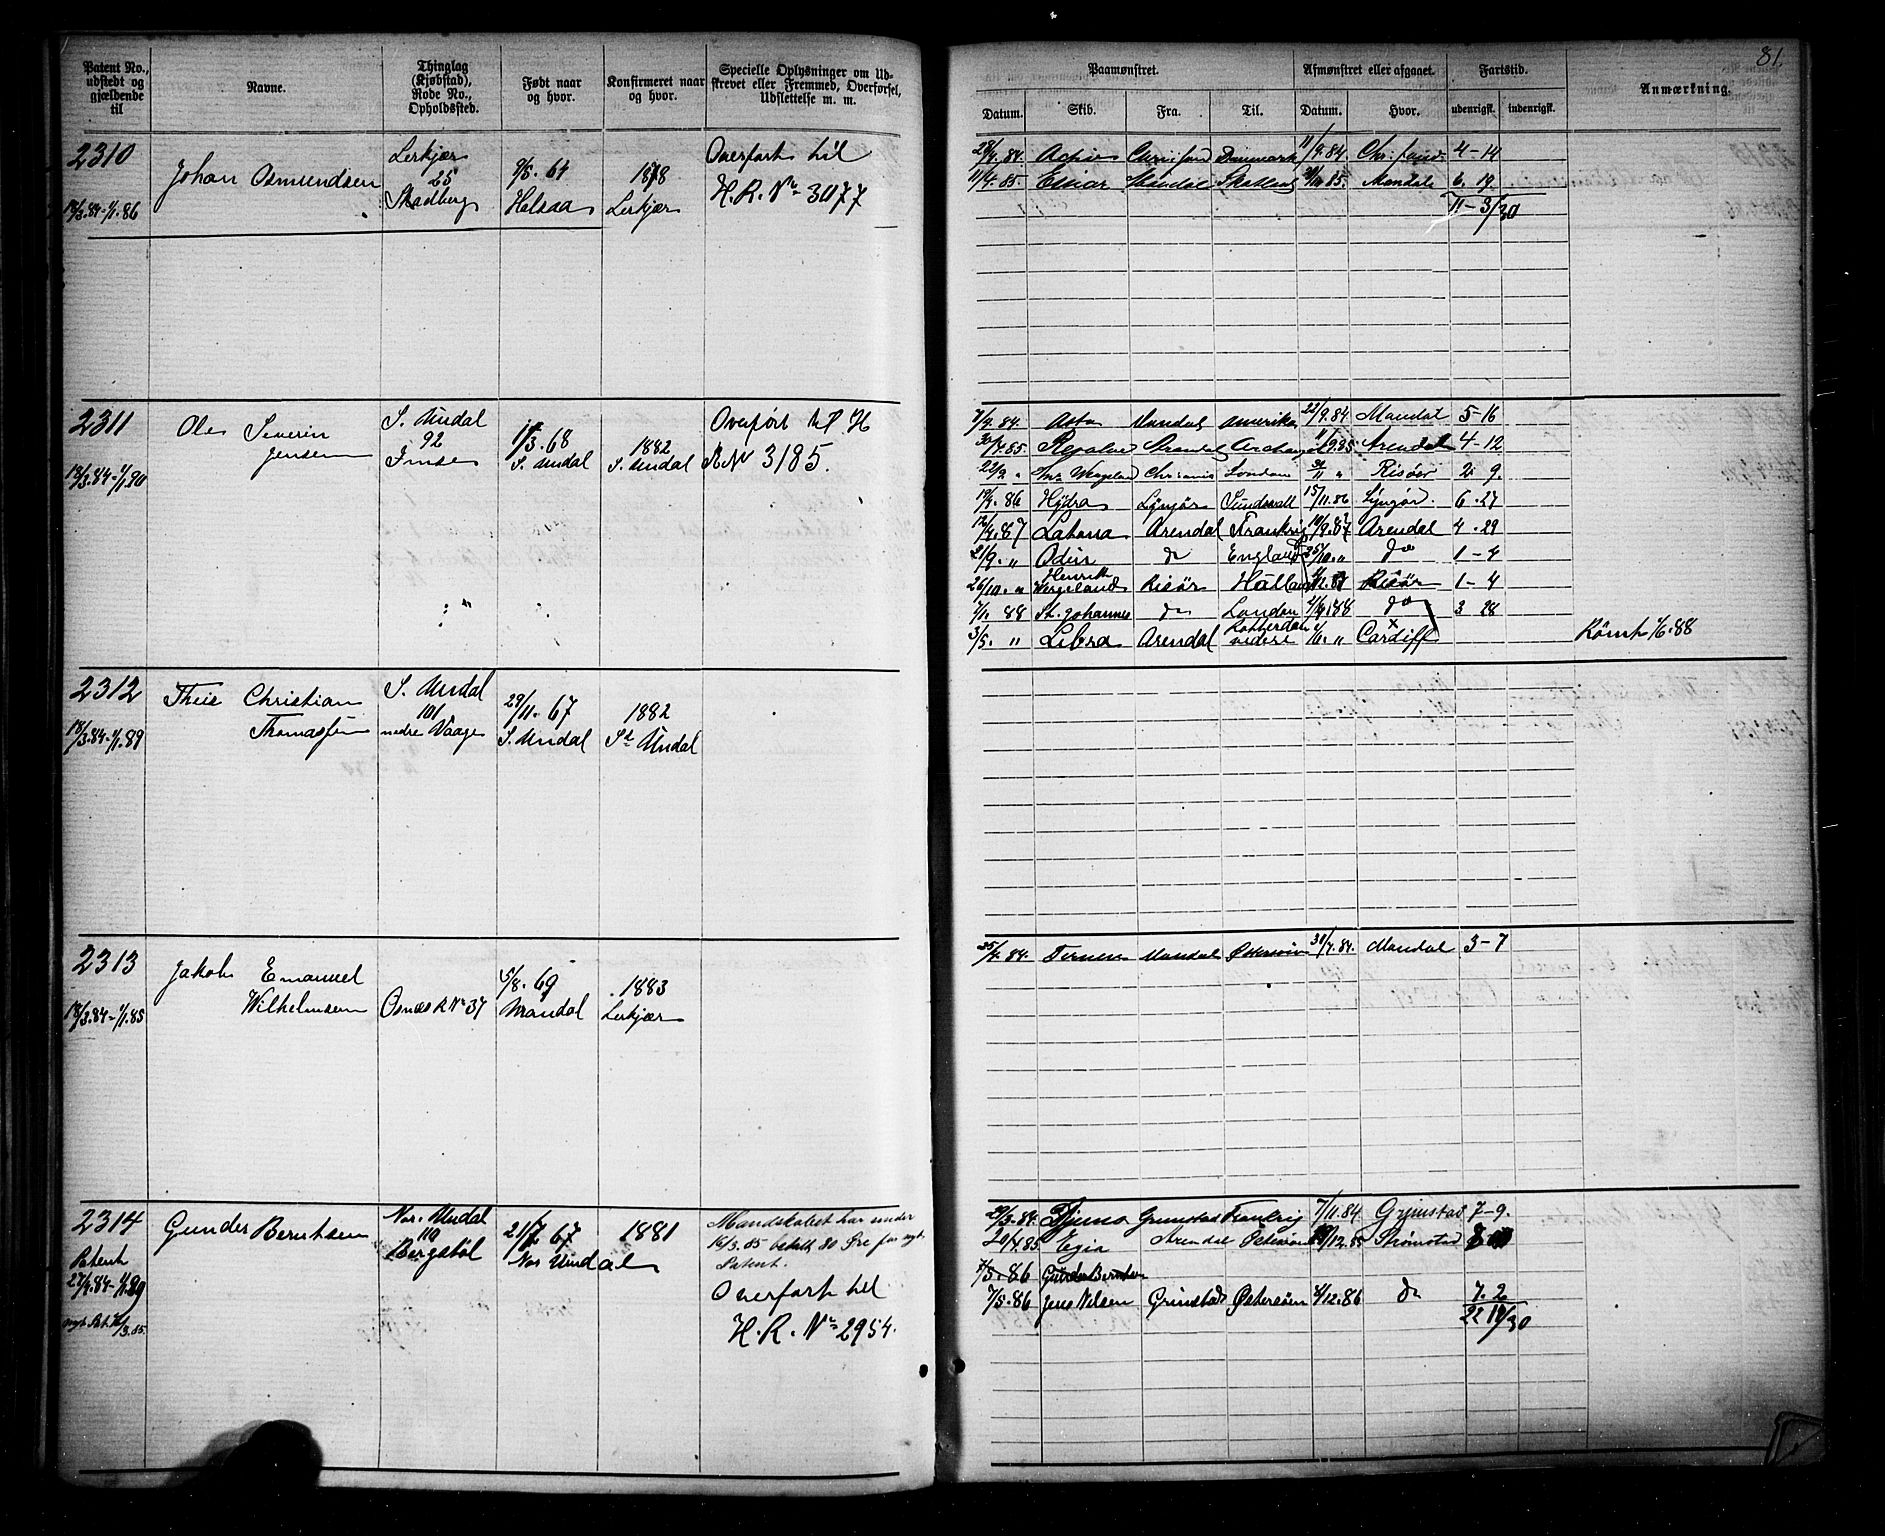 81.
Patent No., udstedt og gjældende til
Navne.
Thinglag (Kjøbstad), Rode No., Opholdssted.
Født naar og hvor.
Konfirmeret naar og hvor.
Specielle Oplysninger om Udstrevet eller Fremmed, Overførsel, Udslettelse m. m.
Paamønstret.
Afmønstret eller afgaaet.
Fartstid.
Anmærkning.
Datum. Skib. Fra. Til. Datum. Hvor. udenrigsk. indenrigsk.
2310
18/3.84-1/1.86
Johan Osmundsen
Lerkjær
25
Skadberg
9/8. 64
Halsaa
1878
Lerkjær
Overført til
H. R. No 3077
28/4. 84. Danmark 11/9.84 Chr.sand 4-14
11/4.85. Einar Mandal 85. Mandal 6. 19.
11-3/30
2311
18/3.84-1/1.90
Ole Severin
Jensen
S. Undal
92
1/3.68
S. Undal
1882
S. Undal
Overført til H
R No 3185.
7/4.84. Asta Mandal Amerika 22/9.84. Mandal 5-16
30/4.85. Archangel 11/9.85 Arendal 4-12
22/9 " Wergeland London " Risøer 2. 9.
19/4. 86 Hydra Lyngør Sundsvall 15/11.86 Lyngør. 6-27
12/4.87 Latona Arendal Frankrig 10/9.87 Arendal 4-29
21/9. " Odin do England 25/10. " do 1-4
26/10. " Henrik Wergeland Risør Holland Risør 1-4
2/1. 88 St. Johannes do London do 3 28
3/5. " Libra Arendal Rotterdam videre 1/6. " Cardiff
Rømt 1/6.88
2312
18/3.84-1/1.89
Theis Christian
Thomassen
S. Undal
101
nedre Vaage
29/11. 67
S. Undal
1882
S. Undal
2313
18/3.84-1/1.85
Jakob Emanuel
Wilhelmsen
Osnæs R No 37
5/8. 69
Mandal
1883
Lerkjær
25/4. 84. Ternen Mandal Østersøen 31/7.84. Mandal 3-7
2314
Patent
27/3.84-1/1.89
nyt Pat. 16/3.85.
Gunder Berntsen
Nor. Undal
110
Bergstøl
21/7. 67
Nor Undal
1881
Mandskabet har under
16/3.85 betalt 80 Øre for nyt
Patent.
Overført til
H. R. No 2954.
29/3.84. Grimstad Frankrig 7/11.84 Grimstad 7-9.
20/4.85 Egia Arendal Østersøen /12.85 Strømstad
7/5.86 Gunder Berntsen
7/5.86 Jens Nilsen Grimstad Østersøen 4/12.86 do 7. 2
22 18/30